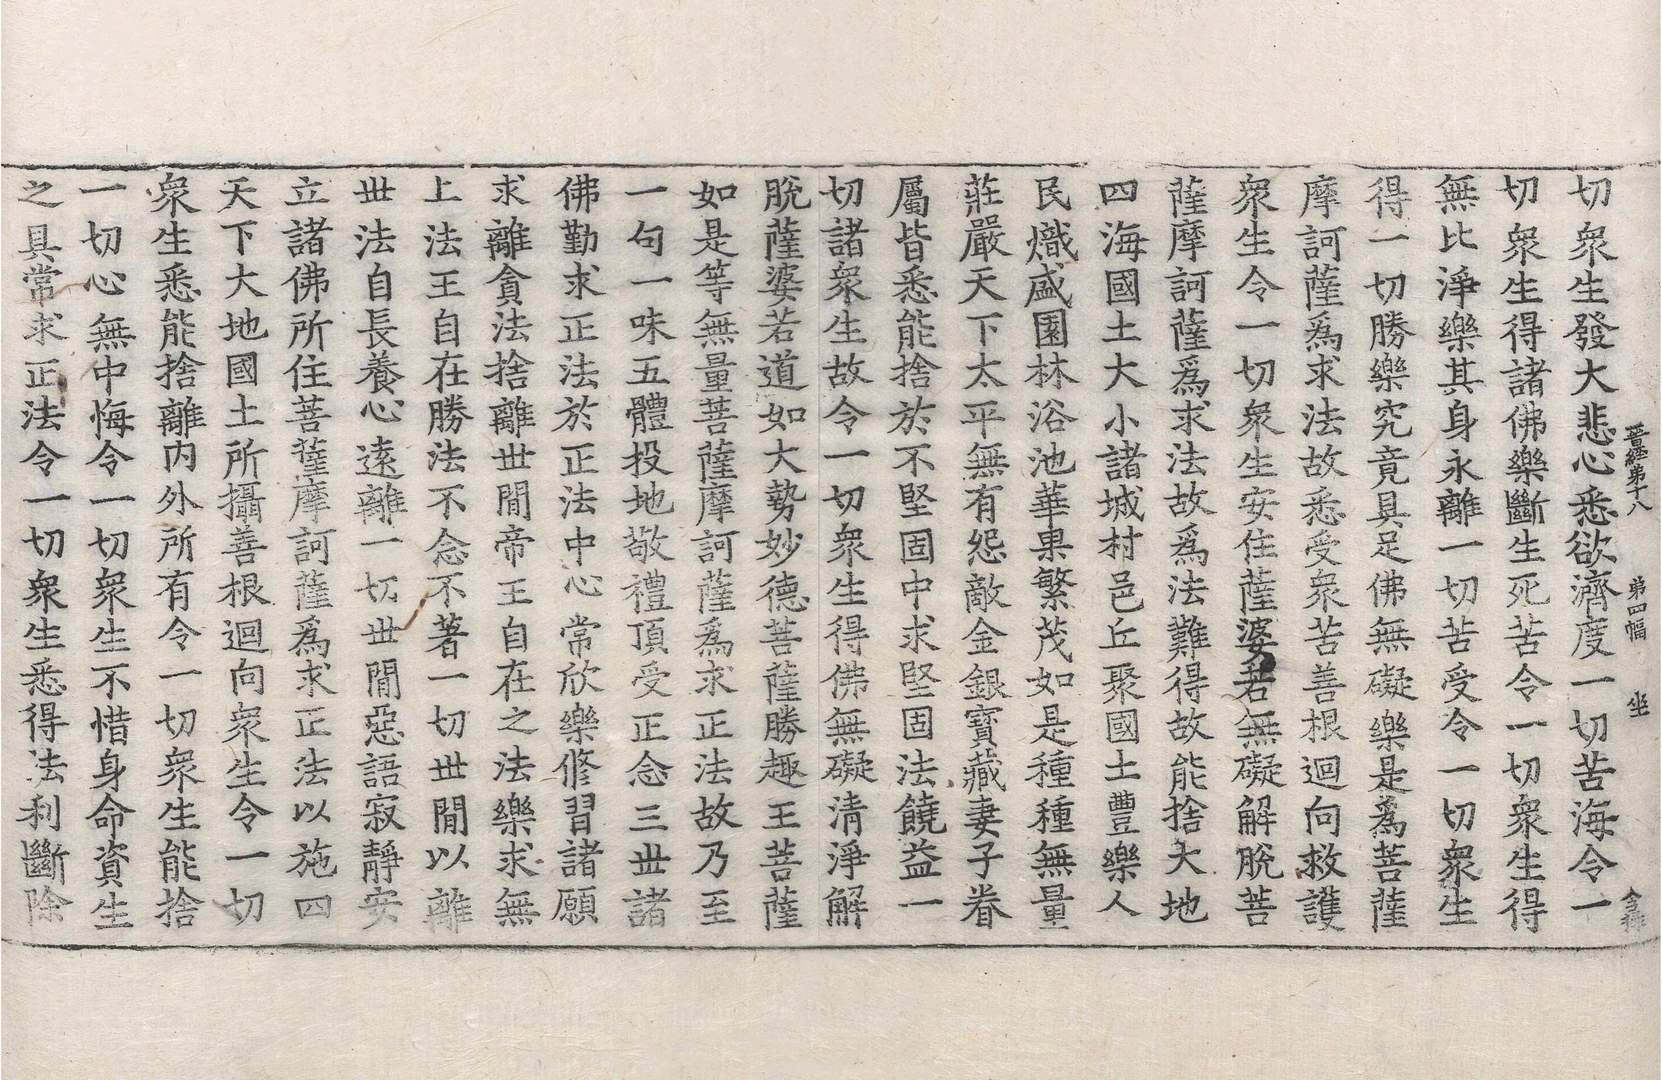 晉經第十八 第四幅 坐
切衆生發大悲心悉欲濟度一切苦海令一
切衆生得諸佛樂斷生死苦令一切衆生得
無比淨樂其身永離一切苦受令一切衆生
得一切勝樂究竟具足佛無礙樂是爲菩薩
摩訶薩爲求法故悉受衆苦善根迴向救護
衆生令一切衆生安住薩婆若無礙解脫菩
薩摩訶薩爲求法故爲法難得故能捨大地
四海國土大小諸城村邑丘聚國土豐樂人
民熾盛園林浴池華果繁茂如是種種無量
莊嚴天下太平無有怨敵金銀寶藏妻子眷
屬皆悉能捨於不堅固中求堅固法饒益一
切諸衆生故令一切衆生得佛無礙清淨解
脫薩婆若道如大勢妙德菩薩勝趣王菩薩
如是等無量菩薩摩訶薩爲求正法故乃至
一句一味五體投地敬禮頂受正念三世諸
佛勤求正法於正法中心常欣樂修習諸願
求離貪法捨離世間帝王自在之法樂求無
上法王自在勝法不念不著一切世間以離
世法自長養心遠離一切世間惡語寂靜安
立諸佛所住菩薩摩訶薩爲求正法以施四
天下大地國土所攝善根迴向衆生令一切
衆生悉能捨離內外所有令一切衆生能捨
一切心無中悔令一切衆生不惜身命資生
之具常求正法令一切衆生悉得法利斷除